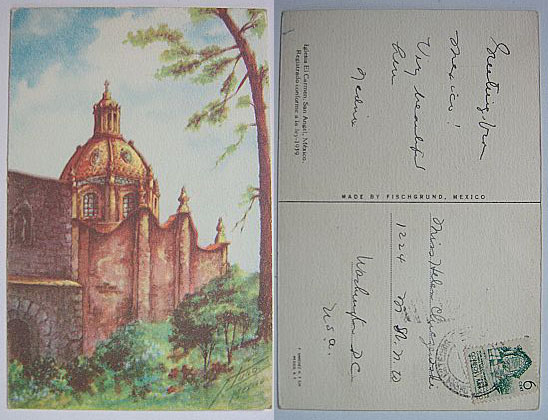 Iglesia El Carmen, San Angel, México.
Registrado conforme a la ley-1939
Greetings from
Mexico!
Very beautiful
here
MADE BY FISCHGRUND, MEXICO
Miss Helen
1224 M St. N W
Washington D.C.
U.S.A.
6